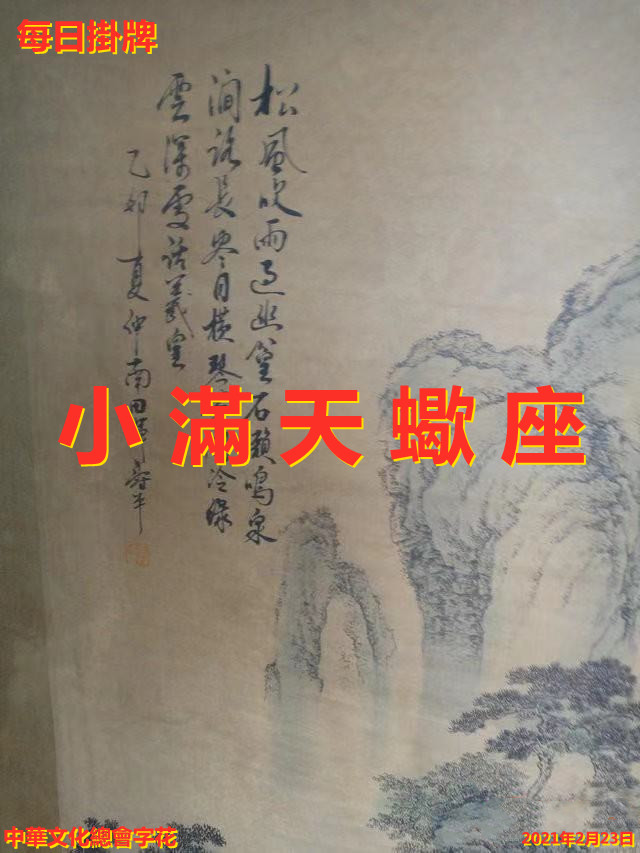 每日掛牌
松風吹雨過幽篁石瀨鳴泉
澗路長終日橫琴冷綠
雲深處話羲皇
乙卯夏仲南田壽平
小滿天蠍座
中華文化總會字花
2021年2月23日